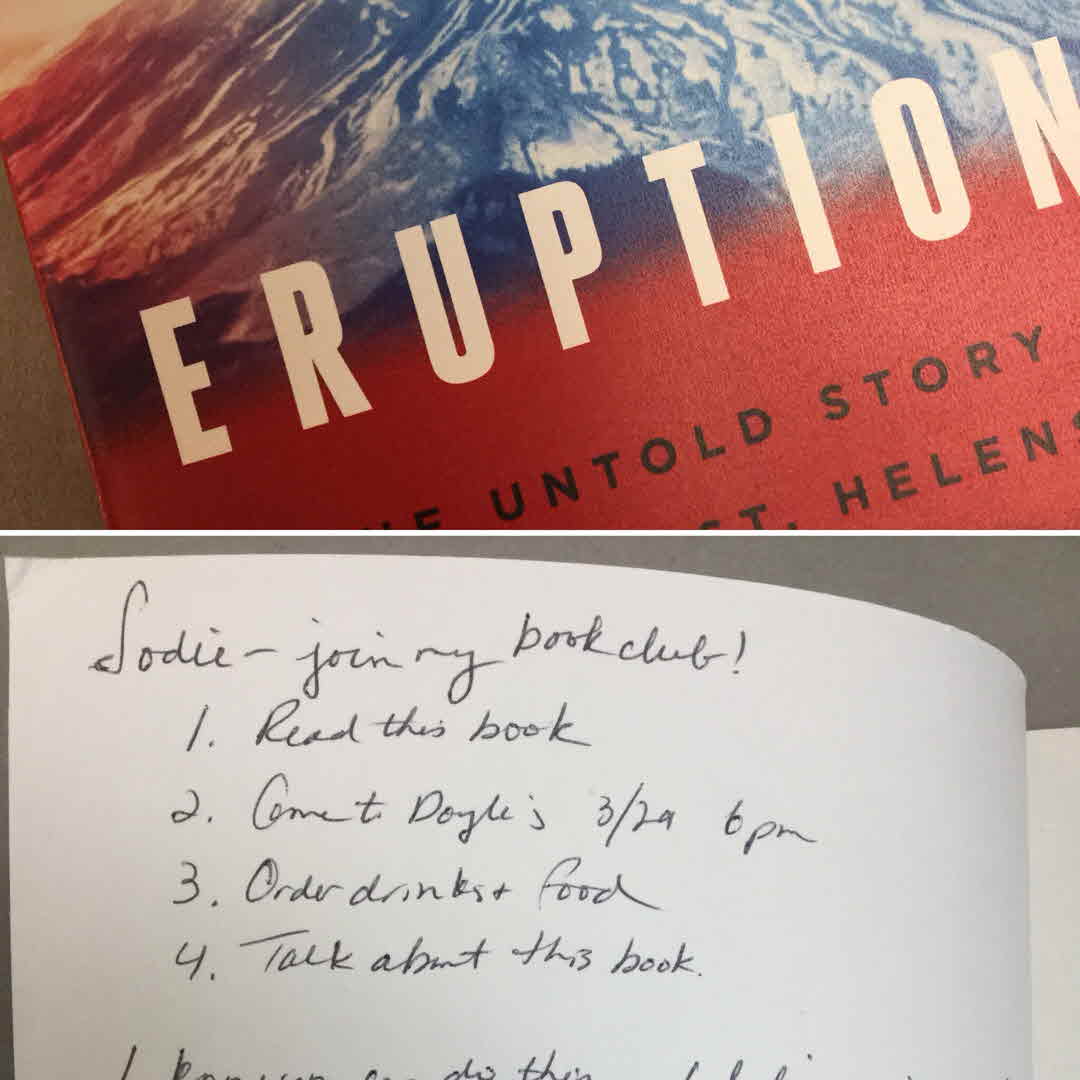 ERUPTION
UNTOLD STORY
ST. HELENS
Sodie – join my book club!
1. Read this book
2. Come to Doyle's 3/29 6pm
3. Order drinks + food
4. Talk about this book.
do this